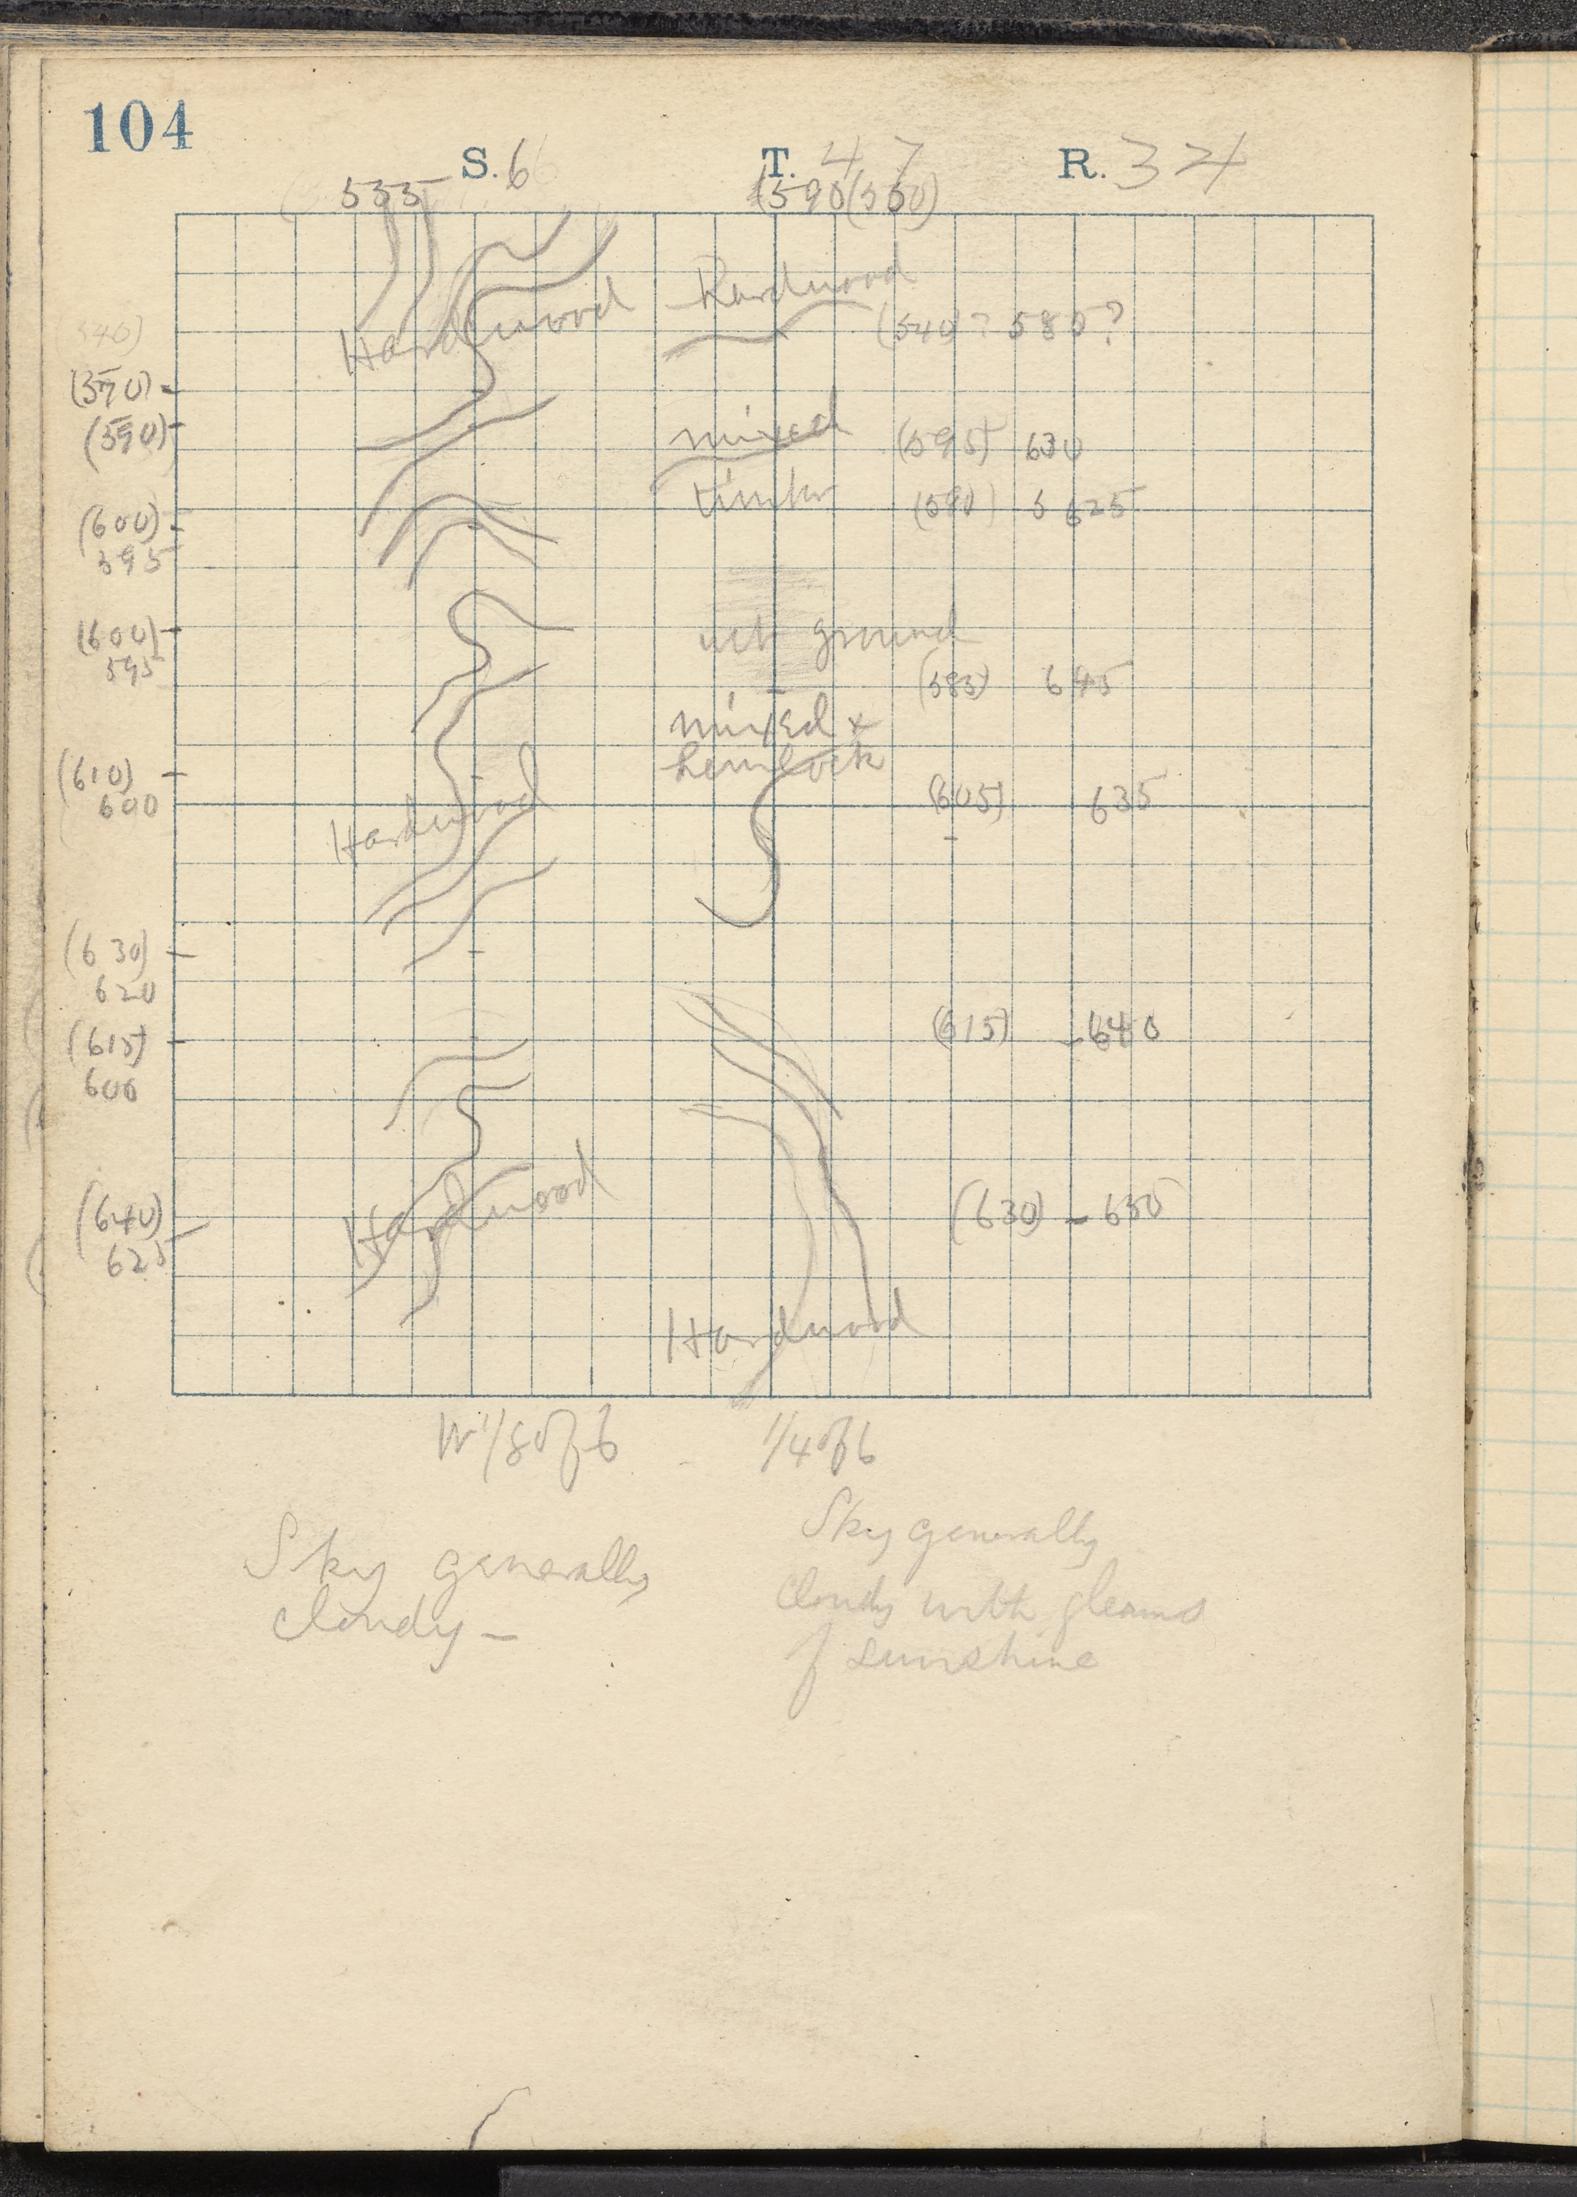 104
S. 6 T. 47 R. 34
535 (590 (550)
Hardwood Hardwood
(540)? 585?
540)
(570)
(590)
mixed (595) 630
timber (590) 625
(600)
595
(600)
595
wet ground
(585) 645
mixed +
hemlock
(610)
600
Hardwood
(605) 635
(630)
620
(615) - 640
(615)
606
Hardwood
(640)
625
(630) - 650
Hardwood
W 1/8 of 6 1/4 of 6
Sky generally
cloudy -
Sky generally
cloudy with gleams
of sunshine